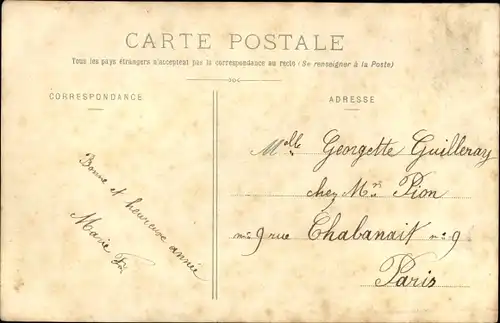 CARTE POSTALE
Tous les pays étrangers n'acceptent pas la correspondance au recto (Se renseigner à la Poste)
CORRESPONDANCE
ADRESSE
Bonne et heureuse année
Marie
Melle Georgette Guilleray
chez Mr Pion
9 rue Chabanait no 9
Paris